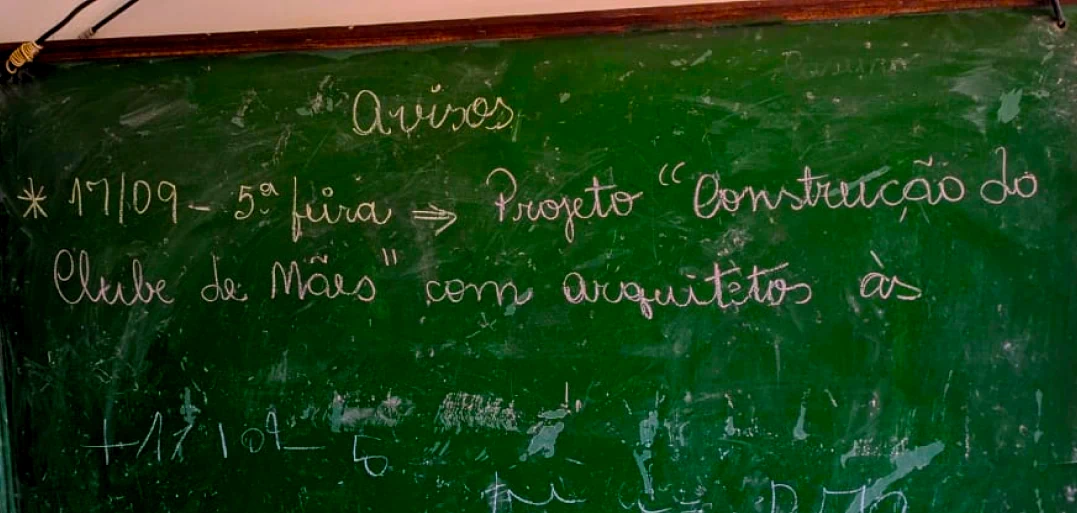 Avisos
* 17/09 - 5ª feira ⇒ Projeto “Construção do
Clube de Mães” com arquitetos às